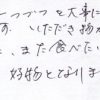 一つづつを大事に
す. いただき物が
、また食べたい
好物となりま